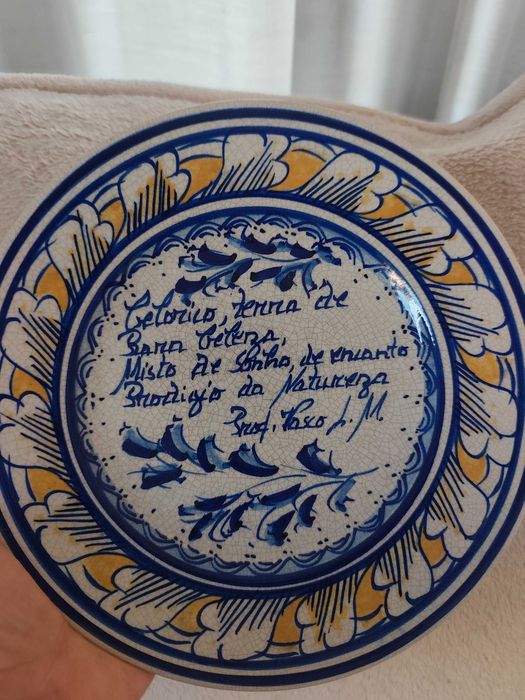 Celorico, terra de
Rara beleza,
Misto de Sonho, de encanto
Prodigio da Natureza
Prof. Vasco L. M.